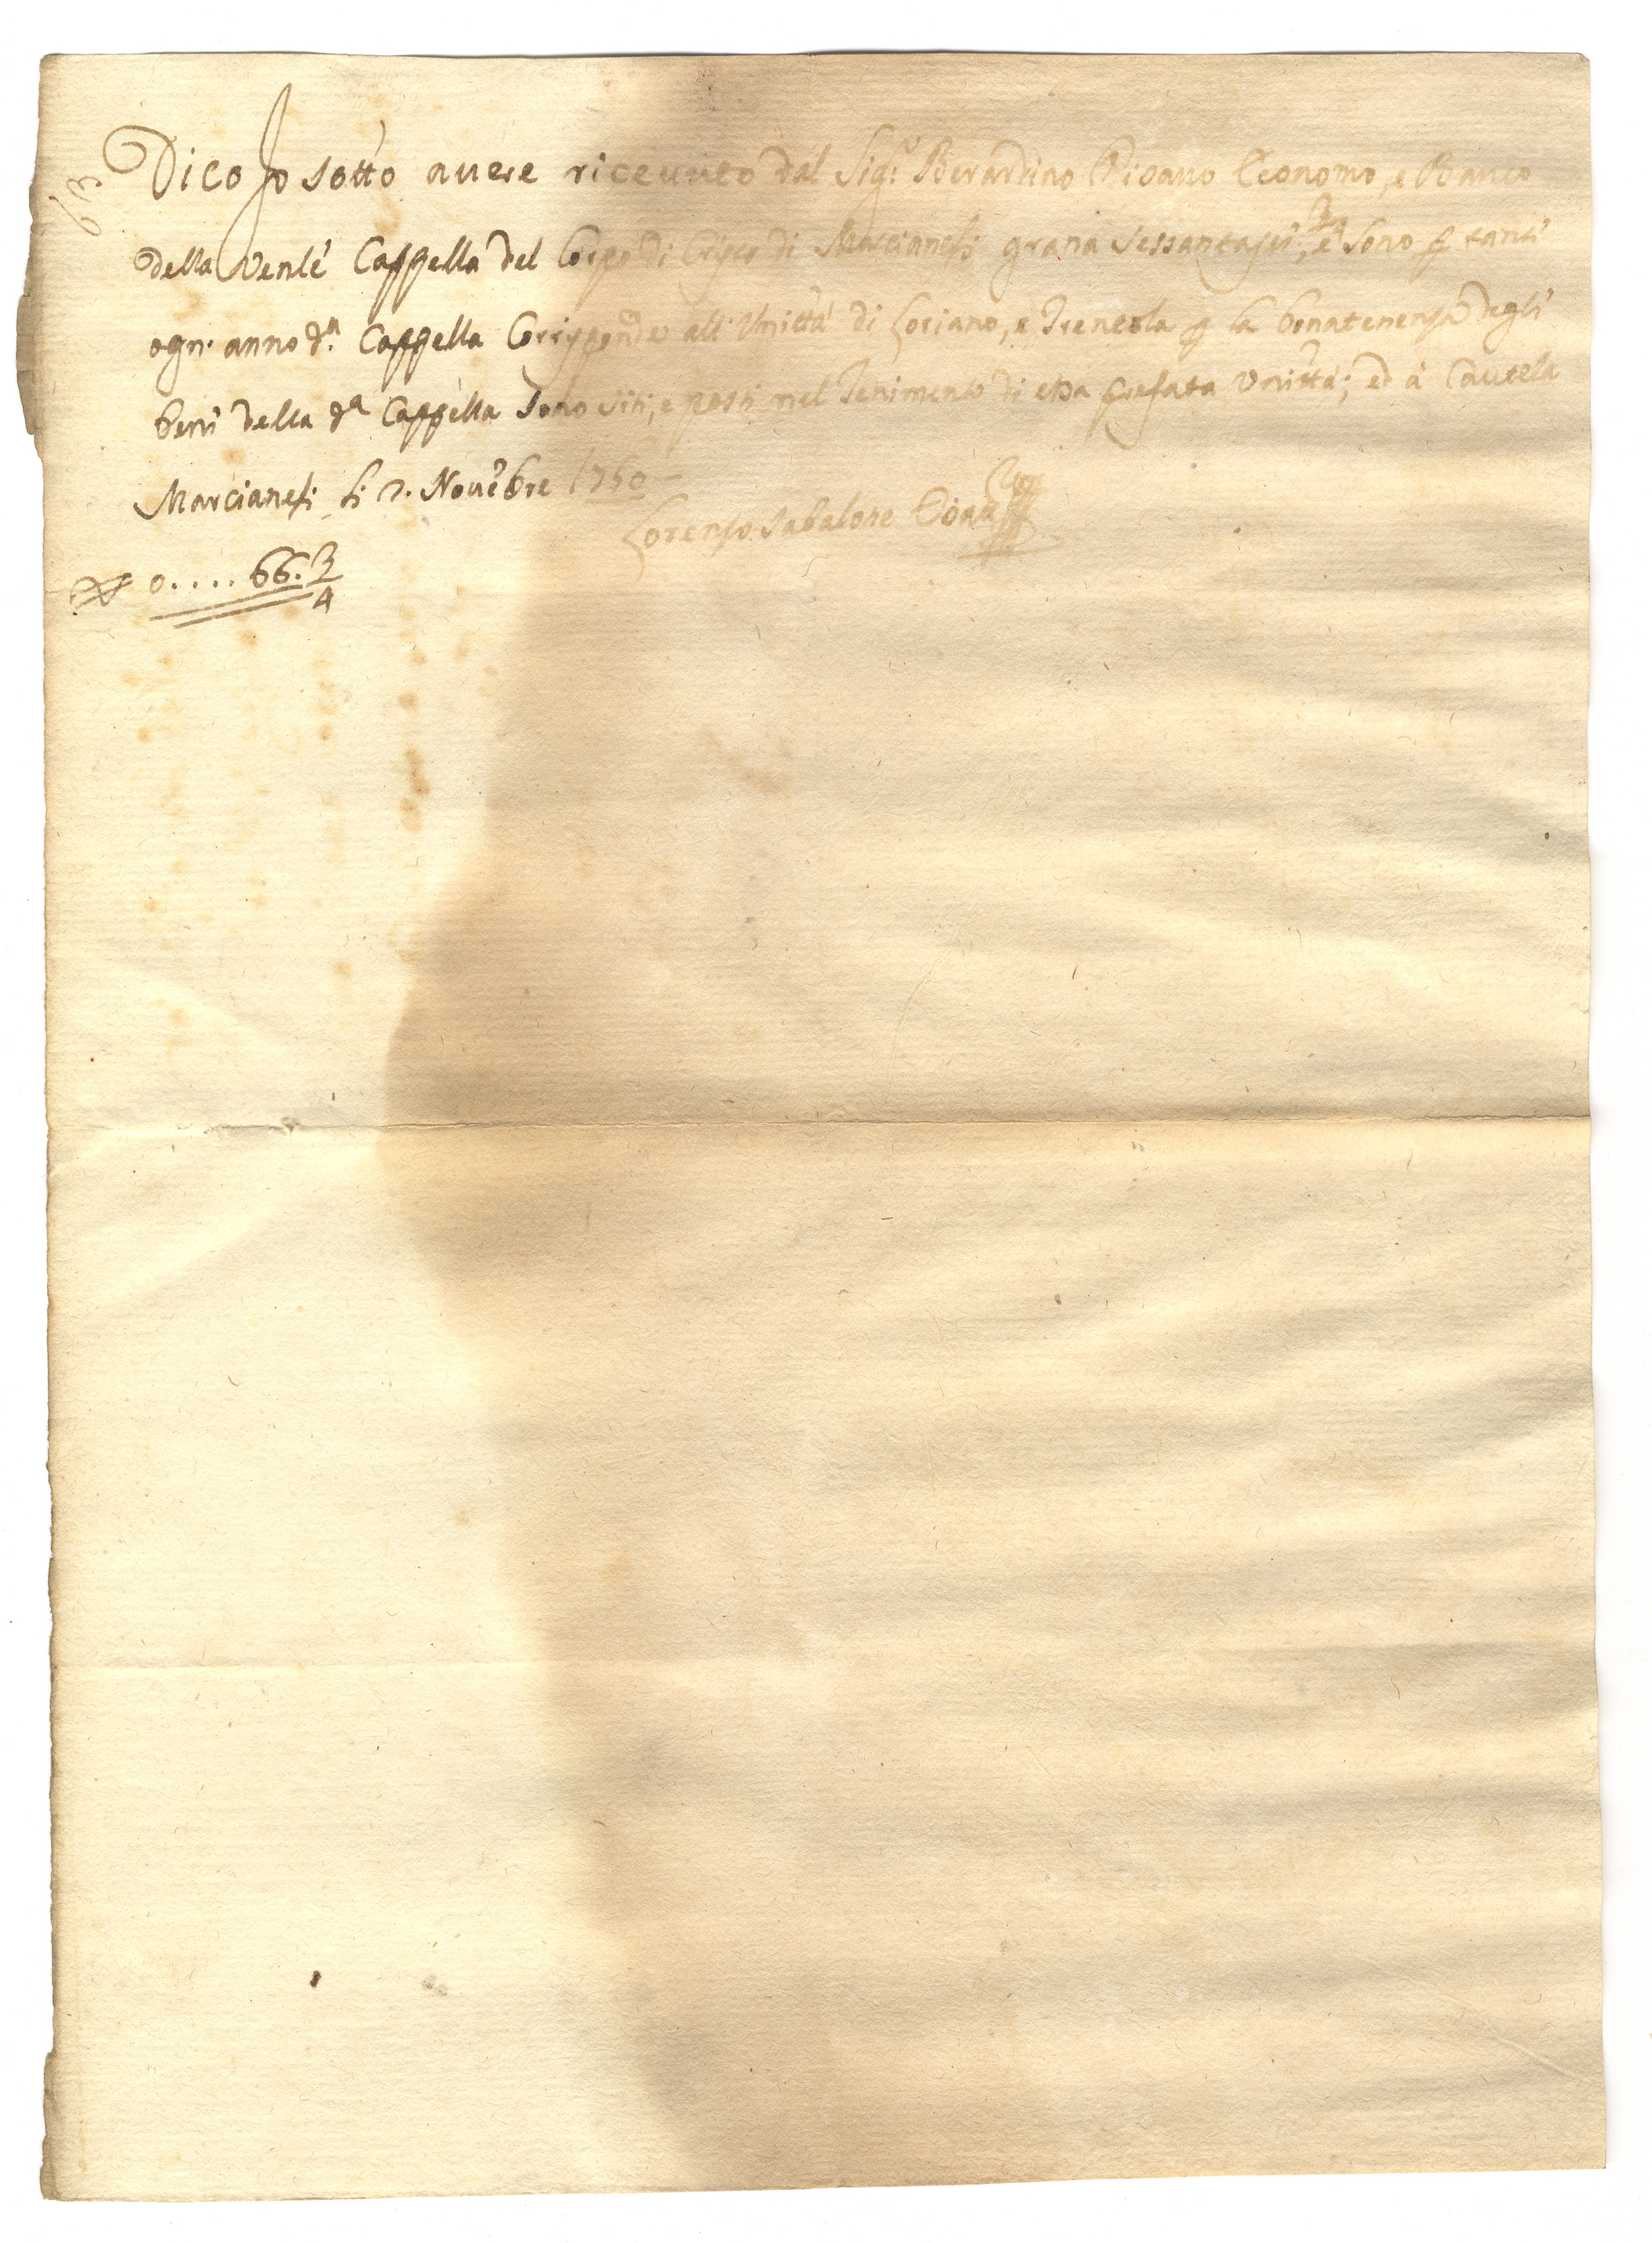 63
Dico Io sotto auere riceuuto dal Sig.r Berardino Economo, e Banco
della Venle Cappella del Corpo di Cristo di Marcianesi grana sessantasei, 3/4 e sono p tanti
ogni anno d.a Cappella Corrisponde all' Uniuttà di Loriano, e Trentola p la bonatenenza degli
beni della da Cappella sono siti, e posti nel Tenimento di essa prefata Uniuttà; ed à Cautela
Marcianesi li 7. Nouebre 1760
Lorenzo
0.... 66. 3/4